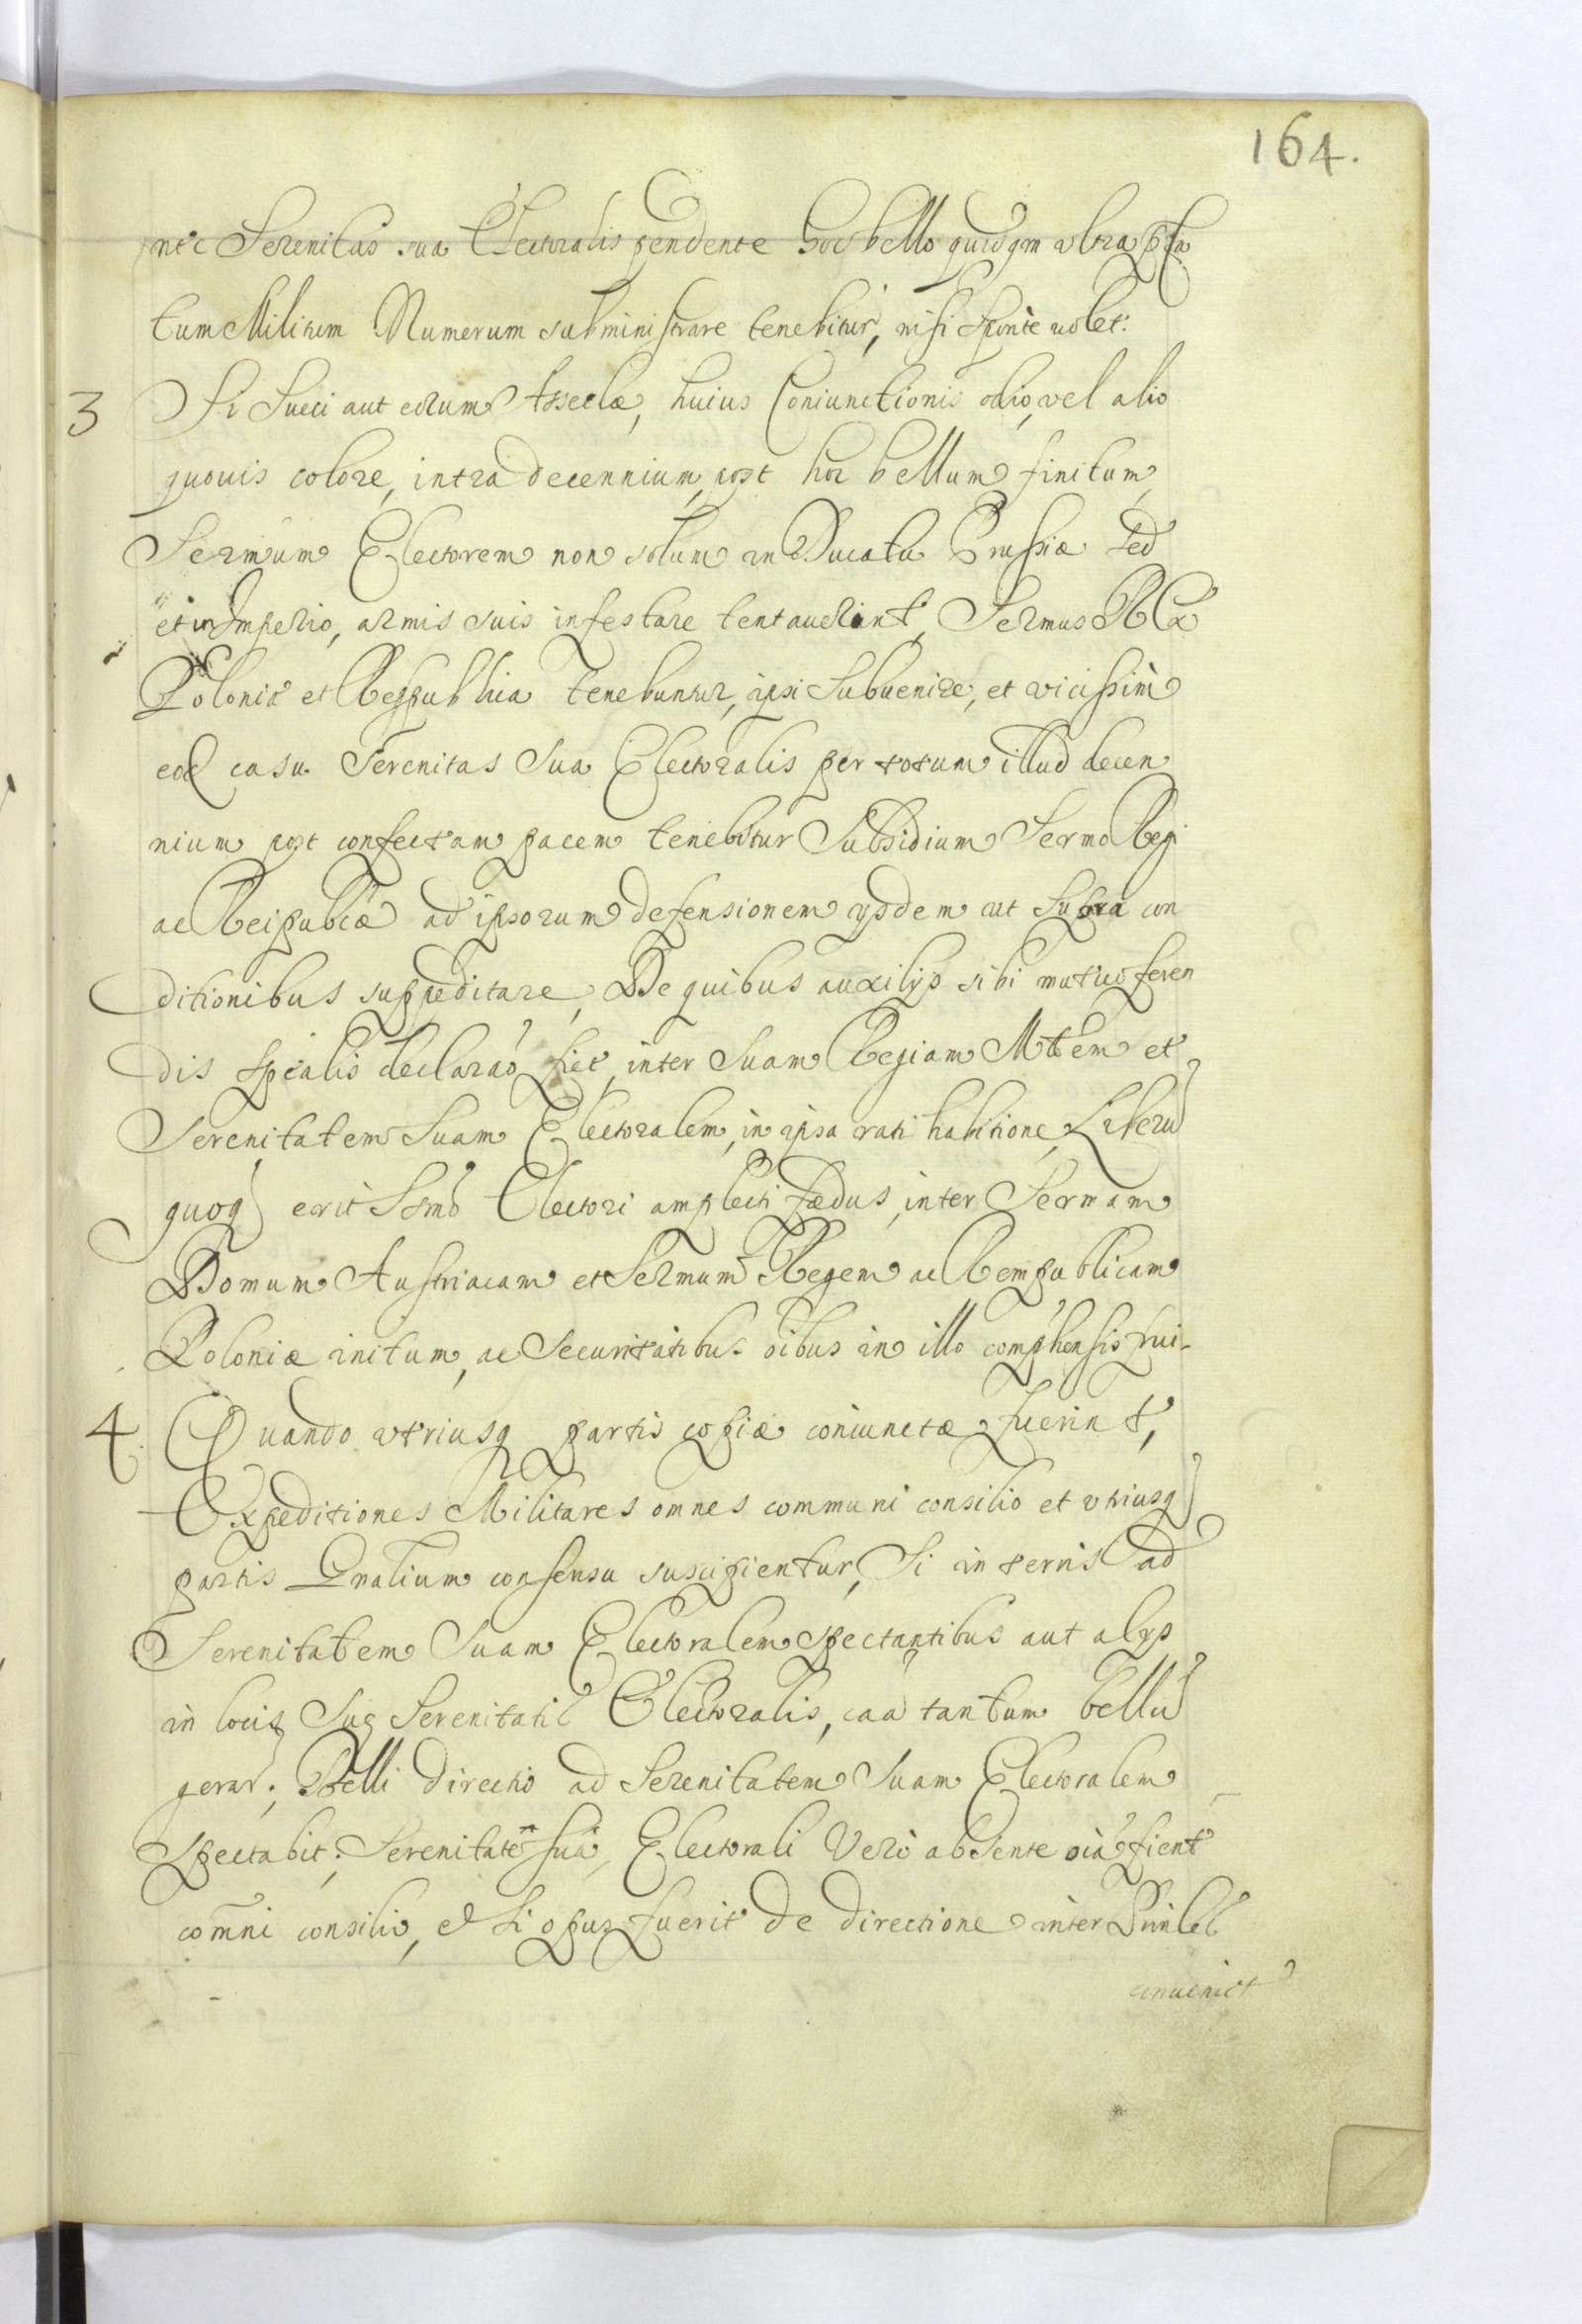 164.
nec Serenitas sua Electoralis pendente hoc bello quidqm ultra pfa
tum Militum Numerum subministrare tenebitur, nisi sponte uolet.
3 Si Sueci aut eorum Asseclæ, huius Coniunctionis odio, vel alio
quouis colore, intra decennium, post hoc bellum finitum,
Sermum Electorem non solum in Ducatu Prussiæ sed
et in Imperio, armis suis infestare tentauerint, Sermus Rex
Poloniæ et Respublica tenebuntur, ipsi Subuenire, et vicissim
eod casu Serenitas Sua Electoralis per totum illud decen
nium post confectam pacem tenebitur Subsidium Sermo Regi
ac Reipublicæ ad ipsorum defensionem ysdem ut Supra con
ditionibus suppeditare, De quibus auxilys sibi mutuo feren
dis spealis declarao fiet, inter Suam Regiam Mttem et
Serenitatem Suam Electoralem, in ipsa rati habitione, Liberu
quoq erit Ssmo Electori amplecti fædus, inter Sermam
Domum Austriacam et Sermum Regem ac Rempublicam
Poloniæ initum, ac Securitatibus oibus in illo comphensis frui.
4. Quando utriusq partis copiæ coniunctæ fuerint,
Expeditiones Militares omnes communi consilio et utriusq
partis Gnalium consensu suscipientur, Si in terris ad
Serenitatem Suam Electoralem spectantibus aut alys
in locis Suæ Serenitatis Electoralis, caa tantum bellu
gerar; Belli directio ad Serenitatem Suam Electoralem
spectabit; Serenitate sua Electorali Vero absente oia fient
comni consilio, et si opus fuerit de directione inter
conueniet